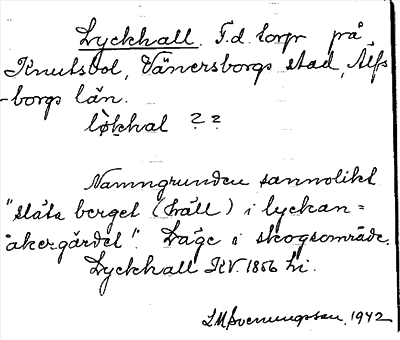 Lyckhall. F.d. torp på
Knutsbol, Vänersborgs stad, Älfs
-borgs län.
løkhal 2 2
Namngrunden sannolikt
"släta berget (häll) i lyckan =
åkergärdet". Läge i skogsområde.
Lyckhall KV. 1856 Li.
LMSvenungsson, 1942